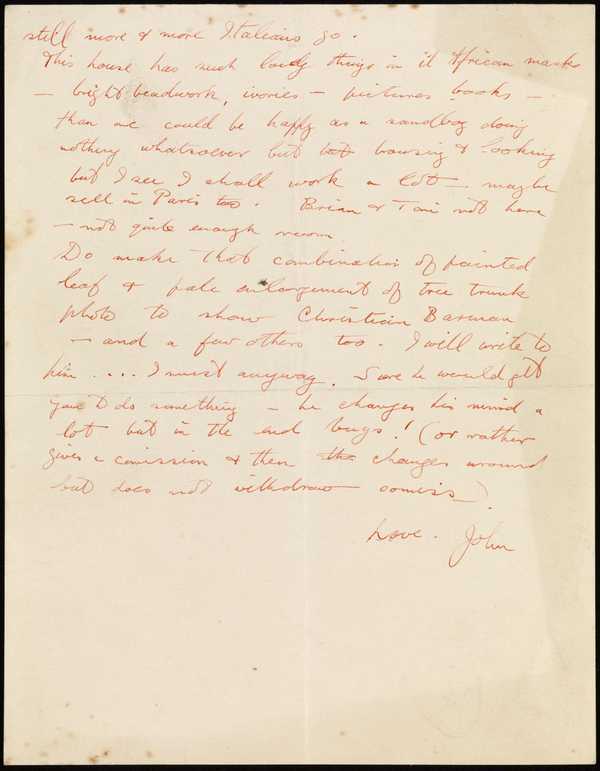 still more & more Italians go.
This house has such lovely things in it African masks
— bright beadwork, ivories — pictures books —
than one could be happy as a sandboy doing
nothing whatsoever but browsing & looking
but I see I shall work a lot — maybe
sell in Paris too. Brian & not here
— not quite enough room
Do make that combination of painted
leaf & pale enlargement of tree trunk
photo to show Christian Barman
— and a few others too. I will write to
him .... I must anyway. Sure he would get
you to do something — he changes his mind a
lot but in the end buys! (or rather
gives a comission & then changes around
but does not withdraw comiss).
Love. John